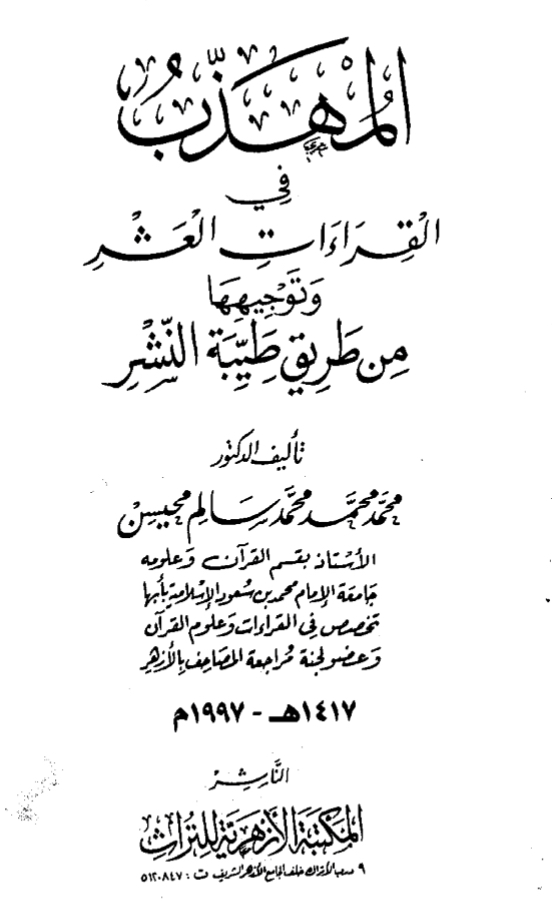 المُهَذَّبُ
فِي
القِرَاءَاتِ العَشْرِ
وَتَوْجِيهِهَا
مِن طَرِيقِ طَيِّبَةِ النَّشْرِ
تأليف الدكتور
محمّد محمّد محمّد سَالِم محيسِن
الأستاذ بقسم القرآن وَعلومه
جَامعَة الإمام محمد بن سُعود الإسْلَامية بأبها
تخصص في القراءات وَعلوم القرآن
وَعضو لجنة مُراجعة المصَاحِف بالأزهر
١٤١٧هـ - ١٩٩٧م
النَّاشِرُ
المكتبَة الأزهريَّة للتراث
٩ درب الأتراك خلف الجامع الأزهر الشريف ت : ٥١٢٠٨٤٧